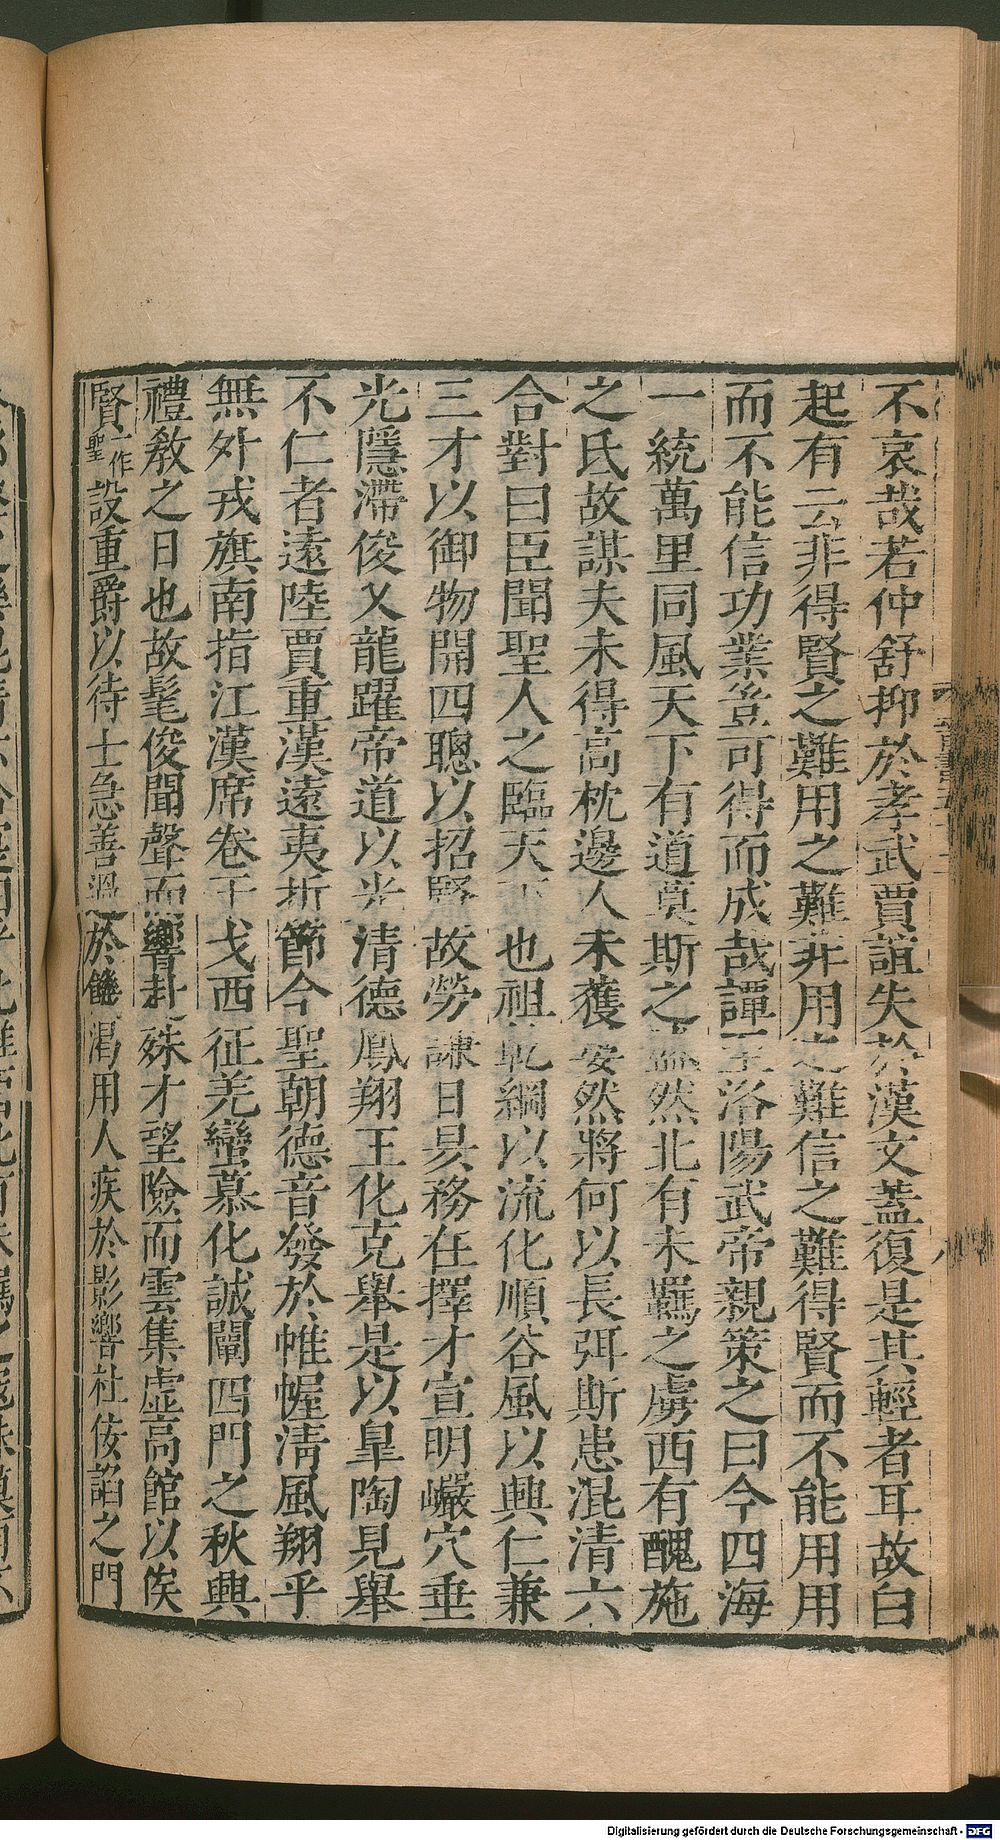 不哀哉若仲舒抑於孝武賈誼失於漢文蓋復是其輕者耳故白
起有云非得賢之難用之難非用之難信之難得賢而不能用用
而不能信功業豈可得而成哉譚至洛陽武帝親策之曰今四海
一統萬里同風天下有道莫斯之盛然北有未羈之虜西有醜施
之氐故謀夫未得高枕邊人未獲晏然將何以長弭斯患混清六
合對曰臣聞聖人之臨天下也祖乾綱以流化順谷風以興仁兼
三才以御物開四聰以招賢故勞謙日昃務在擇才宣明巖穴垂
光隱滯俊乂龍躍帝道以光清德鳳翔王化克舉是以皐陶見舉
不仁者遠陸賈重漢遠夷折節今聖朝德音發於帷幄淸風翔乎
無外戎旗南指江漢席卷干戈西征羌蠻慕化誠闡四門之秋興
禮教之日也故髦俊聞聲而響赴殊才望險而雲集虛高館以俟
賢一作聖設重爵以待士急善過於饑渴用人疾於影響杜佞諂之門
八
Digitalisierung gefördert durch die Deutsche Forschungsgemeinschaft - DFG